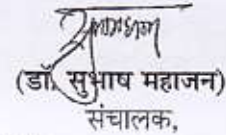 (डॉ. सुभाष महाजन)
संचालक,